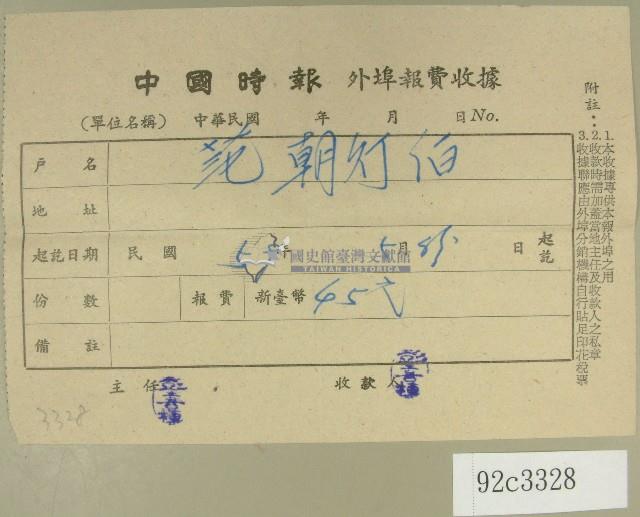 中國時報 外埠報費收據
(單位名稱) 中華民國 年 月 日 No.
戶名 范朝灯伯
地址
起訖日期 民國 5 年 5月份 日 起訖
國史館臺灣文獻館
TAIWAN HISTORICA
份數 報費 新臺幣 45元
備註
主任 收款人
附註：
1.本收據專供本報外埠之用
2.收款時需加蓋當地主任及收款人之私章
3.收據聯應由外埠分銷機構自行貼足印花稅票
3328
92c3328